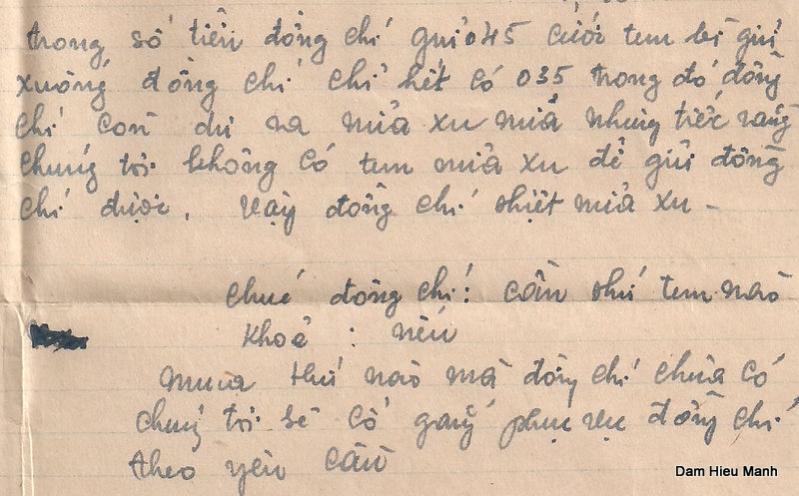 trong số tiền đồng chí gửi 045 cước tem bì gửi
xuống đồng chí chi hết có 035 trong đó đồng
chí còn dư ra nửa xu nữa nhưng tiếc rằng
chúng tôi không có tem nửa xu để gửi đồng
chí được. Vậy đồng chí thiệt nửa xu -
Chúc đồng chí: cần thứ tem nào
khoẻ : nếu
mua thứ nào mà đồng chí chưa có
chúng tôi sẽ cố gắng phục vụ đồng chí
theo yêu cầu
Dam Hieu Manh